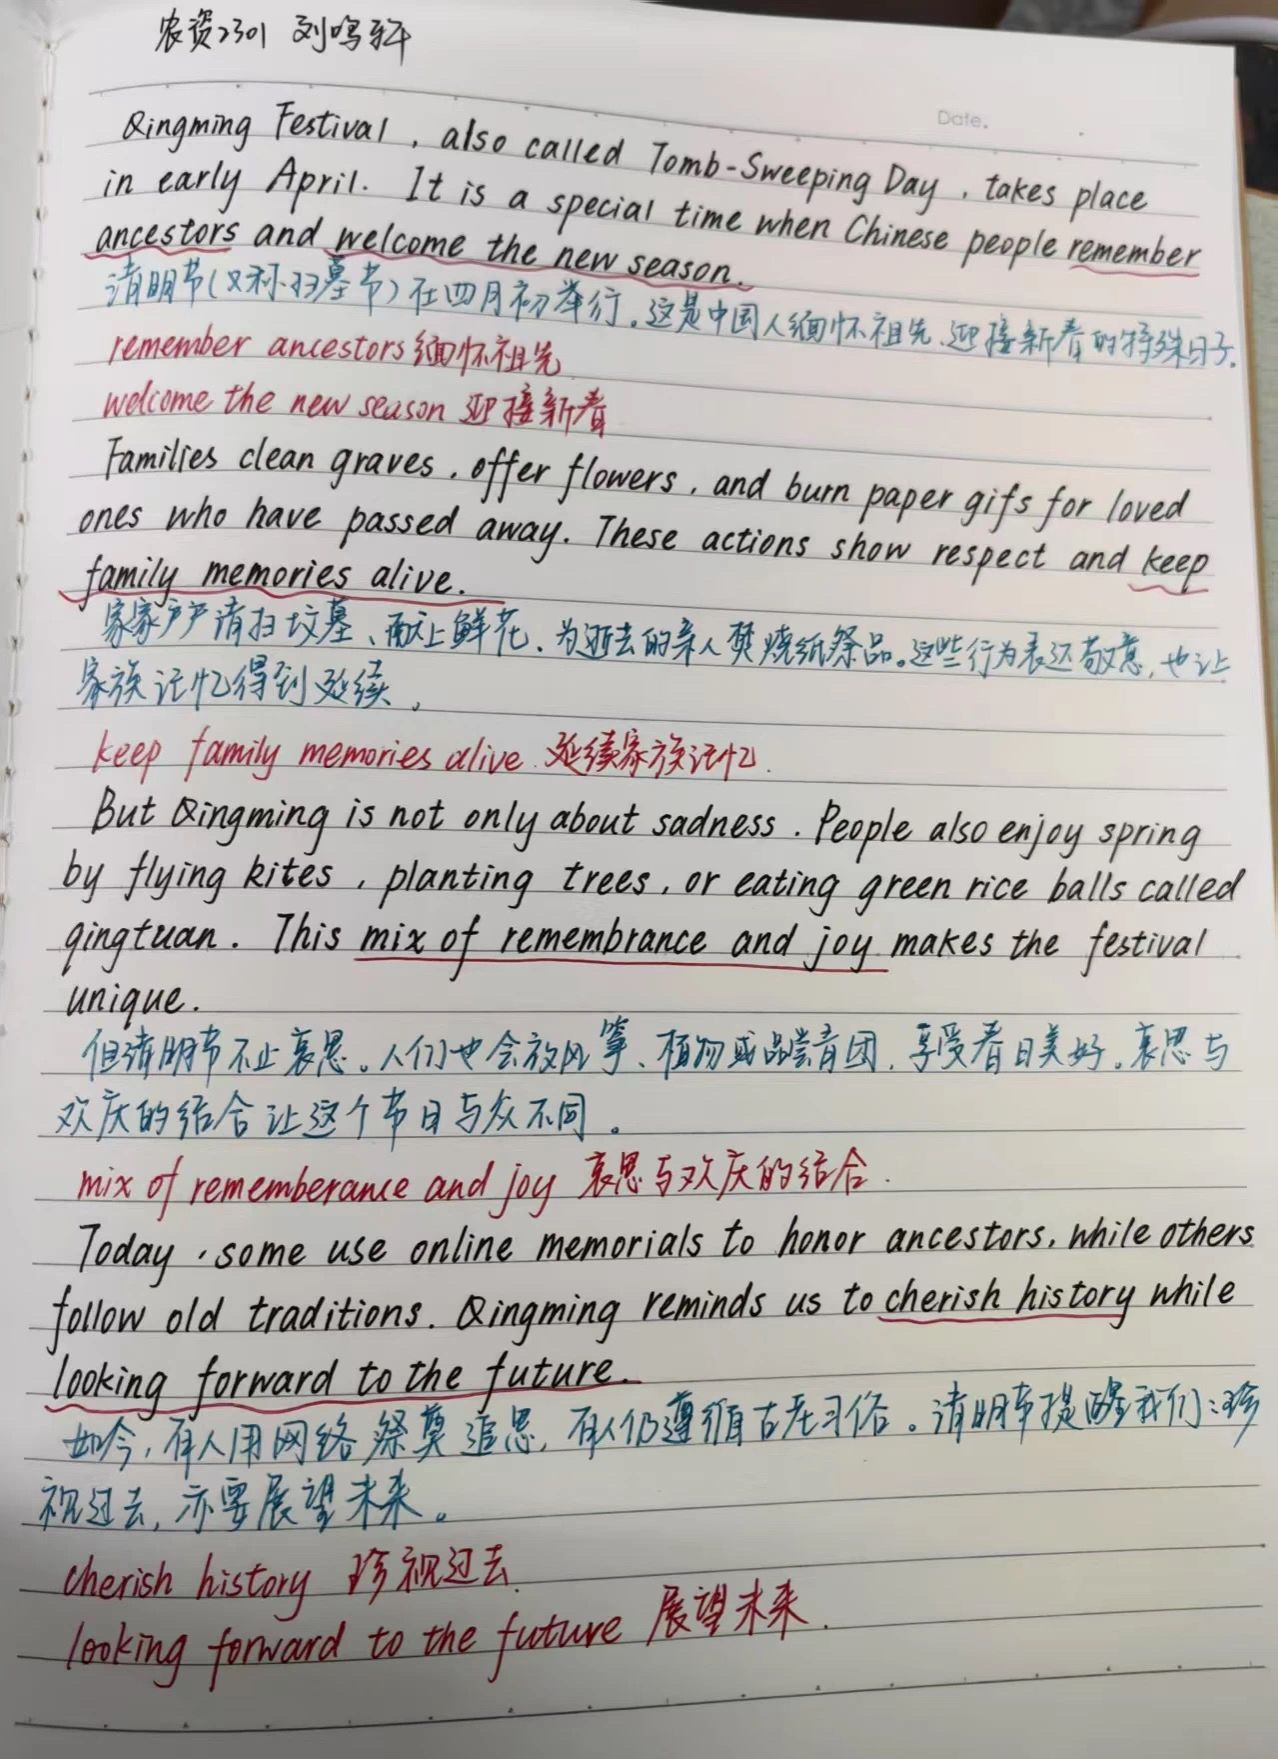 农资2301 刘鸣轩
Date.
Qingming Festival, also called Tomb-Sweeping Day, takes place
in early April. It is a special time when Chinese people remember
ancestors and welcome the new season.
清明节(又称扫墓节)在四月初举行。这是中国人缅怀祖先、迎接新春的特殊日子.
remember ancestors 缅怀祖先
welcome the new season 迎接新春
Families clean graves, offer flowers, and burn paper gifs for loved
ones who have passed away. These actions show respect and keep
family memories alive.
家家户户清扫坟墓、献上鲜花,为逝去的亲人焚烧纸祭品。这些行为表达敬意,也让
家族记忆得到延续。
keep family memories alive 延续家族记忆.
But Qingming is not only about sadness. People also enjoy spring
by flying kites, planting trees, or eating green rice balls called
qingtuan. This mix of remembrance and joy makes the festival
unique.
但清明节不止哀思。人们也会放风筝、植物或品尝青团,享受春日美好。哀思与
欢庆的结合让这个节日与众不同。
mix of rememberance and joy 哀思与欢庆的结合.
Today, some use online memorials to honor ancestors, while others
follow old traditions. Qingming reminds us to cherish history while
looking forward to the future.
如今,有人用网络祭奠追思,有人仍遵循古老习俗。清明节提醒我们:珍
视过去,亦要展望未来。
cherish history 珍视过去.
looking forward to the future 展望未来.